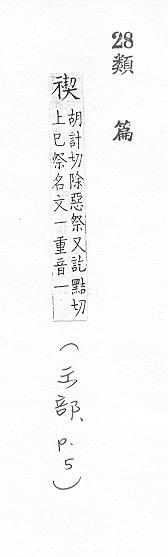 28類 篇
禊
胡計切除惡祭又訖黠切
上巳祭名文一重音一
(示部, p.5)